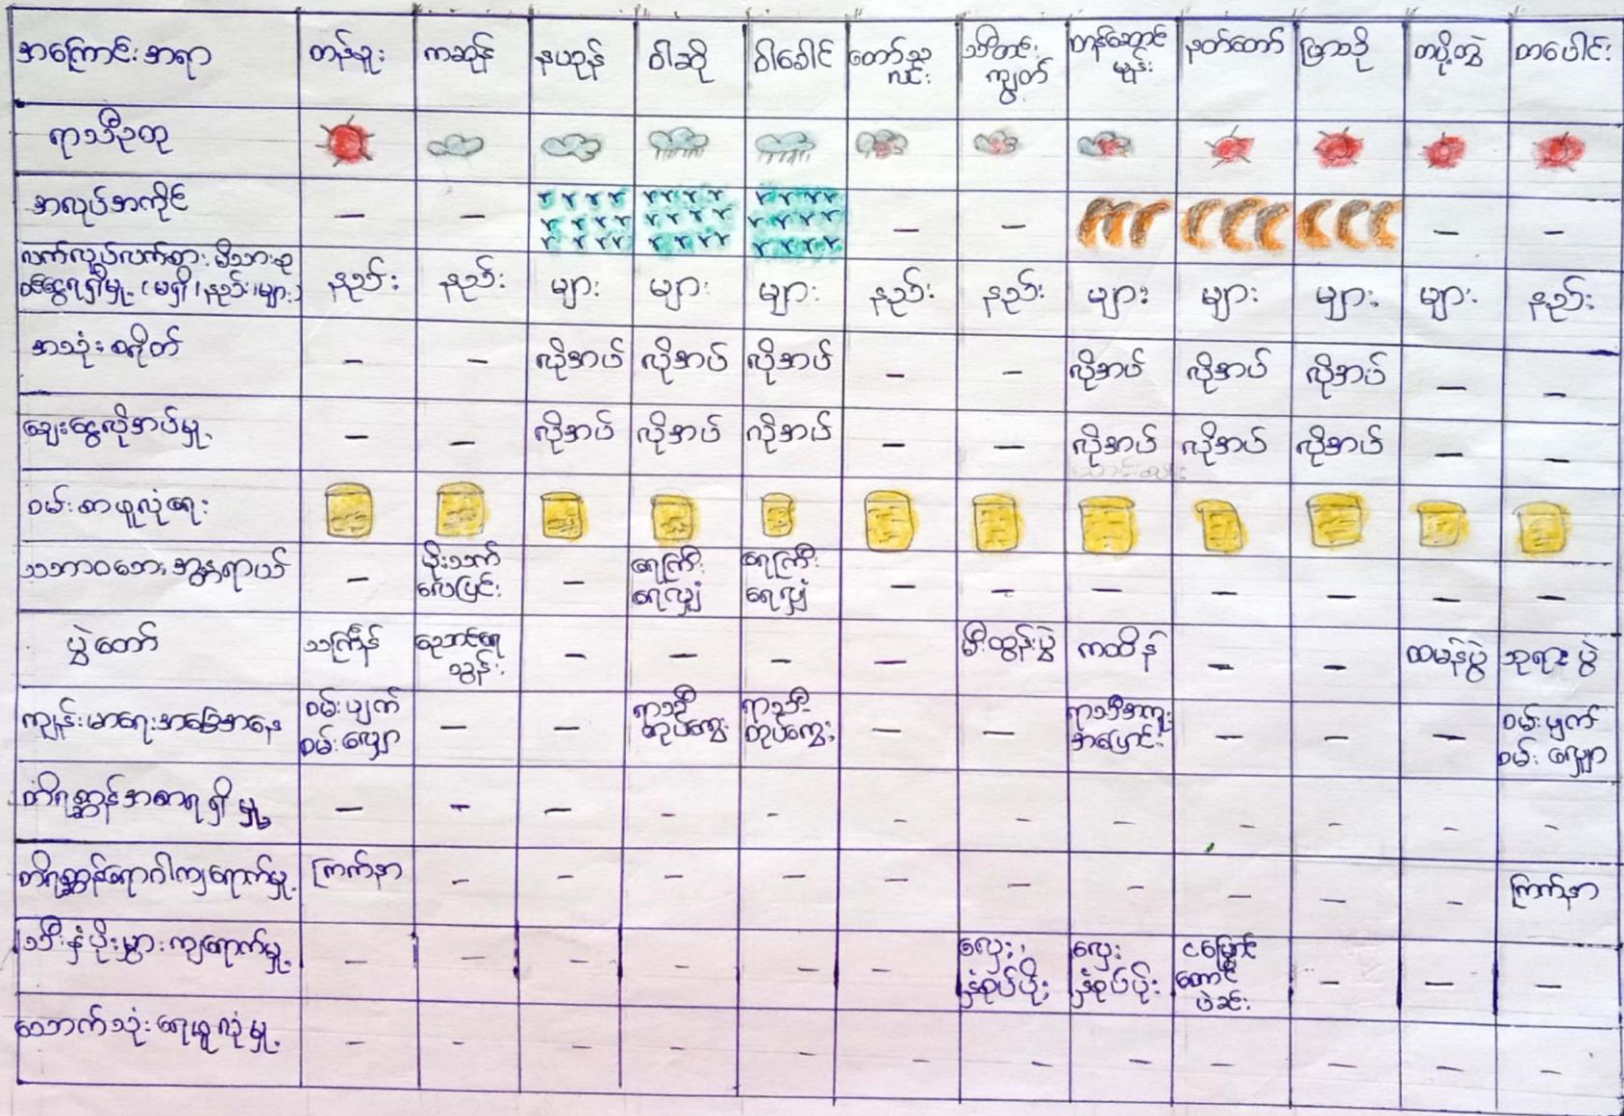 အကြောင်းအရာ တန်ခူး ကဆုန် နယုန် ဝါဆို ဝါခေါင် တော်သလင်း သီတင်းကျွတ် တန်ဆောင်မုန်း နတ်တော် ပြာသို တပို့တွဲ တပေါင်း
ရာသီဥတု
အလုပ်အကိုင် — — — — — —
လက်လုပ်လက်စား မိသားစု
ဝင်ငွေရရှိမှု (မရှိ၊နည်း၊များ) နည်း နည်း များ များ များ နည်း နည်း များ များ များ များ နည်း
အသုံးစရိတ် — — လိုအပ် လိုအပ် လိုအပ် — — လိုအပ် လိုအပ် လိုအပ် — —
ချေးငွေလိုအပ်မှု — — လိုအပ် လိုအပ် လိုအပ် — — လိုအပ် လိုအပ် လိုအပ် — —
ဝမ်းစာဖူလုံရေး
သဘာဝဘေးအန္တရာယ် — မိုးသက်လေပြင်း — ရေကြီးရေလျှံ ရေကြီးရေလျှံ — — — — — — —
ပွဲတော် သင်္ကြန် ညောင်ရေသွန်း — — — — မီးထွန်းပွဲ ကထိန် — — ထမနဲပွဲ ဘုရားပွဲ
ကျန်းမာရေးအခြေအနေ ဝမ်းပျက်ဝမ်းလျှော — — ရာသီတုပ်ကွေး ရာသီတုပ်ကွေး — — ရာသီအကူးအပြောင်း — — — ဝမ်းပျက်ဝမ်းလျှော
တိရစ္ဆာန်အစာရရှိမှု — — — — — — — — — — — —
တိရစ္ဆာန်ရောဂါကျရောက်မှု ကြက်နာ — — — — — — — — — — ကြက်နာ
သီးနှံပိုးမွှားကျရောက်မှု — — — — — — လှေး၊ နှံစုပ်ပိုး လှေး၊ နှံစုပ်ပိုး ငမြှောင်တောင် — — —
သောက်သုံးရေဖူလုံမှု — — — — — — — — — — — —